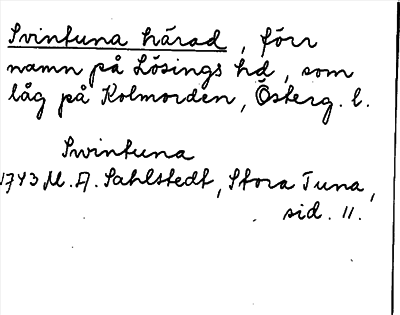 Svintuna härad, förr
namn på Lösings hd, som
låg på Kolmorden, Österg. l.
Swintuna
1743 M. A. Sahlstedt, Stora Tuna,
sid. 11.